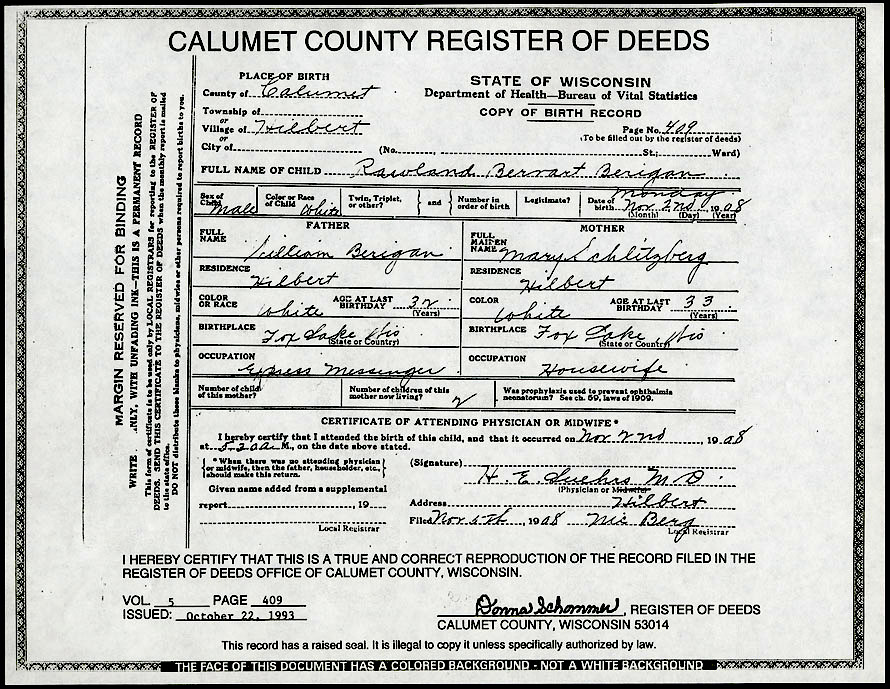 CALUMET COUNTY REGISTER OF DEEDS
MARGIN RESERVED FOR BINDING
WRITE ONLY, WITH UNFADING INK—THIS IS A PERMANENT RECORD
This form of certificate is to be used only by LOCAL REGISTRARS for reporting to the REGISTER OF
DEEDS. SEND THIS CERTIFICATE TO THE REGISTER OF DEEDS when the monthly report is mailed
to the state office.
DO NOT distribute these blanks to physicians, midwives or other persons required to report births to you.
PLACE OF BIRTH
County of Calumet
Township of
or
Village of Hilbert
or
City of (No. St.; Ward)
STATE OF WISCONSIN
Department of Health—Bureau of Vital Statistics
COPY OF BIRTH RECORD
Page No. 409
(To be filled out by the register of deeds)
FULL NAME OF CHILD Rawland Bernart Berigan
Sex of Child Male
Color or Race of Child White
Twin, Triplet, or other?
{ and }
Number in order of birth
Legitimate?
Monday
Date of birth Nov. 2nd 1908
(Month) (Day) (Year)
FATHER
FULL NAME William Berigan
RESIDENCE Hilbert
COLOR OR RACE White AGE AT LAST BIRTHDAY 32 (Years)
BIRTHPLACE Fox Lake Wis
(State or Country)
OCCUPATION Express Messenger
MOTHER
FULL MAIDEN NAME Mary Schlitzberg
RESIDENCE Hilbert
COLOR White AGE AT LAST BIRTHDAY 33 (Years)
BIRTHPLACE Fox Lake Wis
(State or Country)
OCCUPATION Housewife
Number of child of this mother?
Number of children of this mother now living? 2
Was prophylaxis used to prevent ophthalmia neonatorum? See ch. 59, laws of 1909.
CERTIFICATE OF ATTENDING PHYSICIAN OR MIDWIFE*
I hereby certify that I attended the birth of this child, and that it occurred on Nov 2nd, 1908
at 5:30 a M., on the date above stated.
{ *When there was no attending physician
or midwife, then the father, householder, etc.,
should make this return. }
(Signature) H. E. M D.
(Physician or Midwife)
Given name added from a supplemental
report , 19
Local Registrar
Address Hilbert
Filed Nov 5th, 1908 Nic Berg
Local Registrar
I HEREBY CERTIFY THAT THIS IS A TRUE AND CORRECT REPRODUCTION OF THE RECORD FILED IN THE
REGISTER OF DEEDS OFFICE OF CALUMET COUNTY, WISCONSIN.
VOL. 5 PAGE 409
ISSUED: October 22, 1993
Donna Schommer, REGISTER OF DEEDS
CALUMET COUNTY, WISCONSIN 53014
This record has a raised seal. It is illegal to copy it unless specifically authorized by law.
THE FACE OF THIS DOCUMENT HAS A COLORED BACKGROUND - NOT A WHITE BACKGROUND